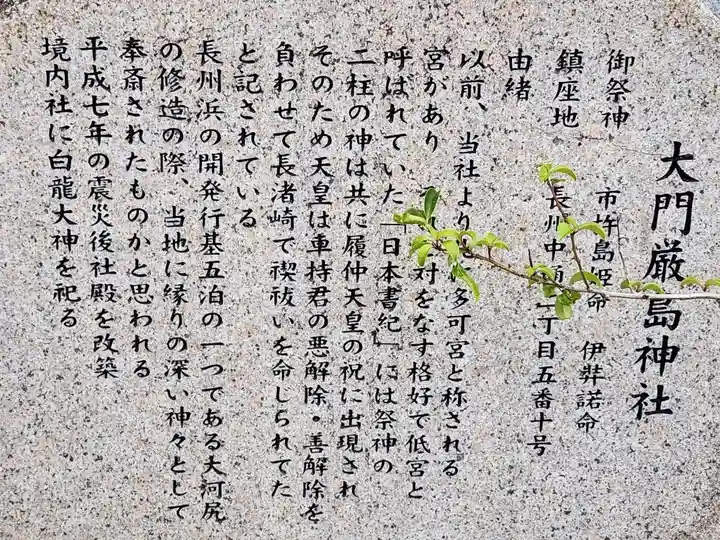 大門厳島神社
御祭神 市杵島姫命 伊弉諾命
鎮座地 長州中 丁目五番十号
由緒
以前、当社より 多可宮と称される
宮があり 対をなす格好で低宮と
呼ばれていた『日本書紀』には祭神の
二柱の神は共に履仲天皇の祝に出現され
そのため天皇は車持君の悪解除・善解除を
負わせて長渚崎で禊祓いを命しられてた
と記されている
長州浜の開発行基五泊の一つである大河尻
の修造の際、当地に縁りの深い神々として
奉斎されたものかと思われる
平成七年の震災後社殿を改築
境内社に白龍大神を祀る